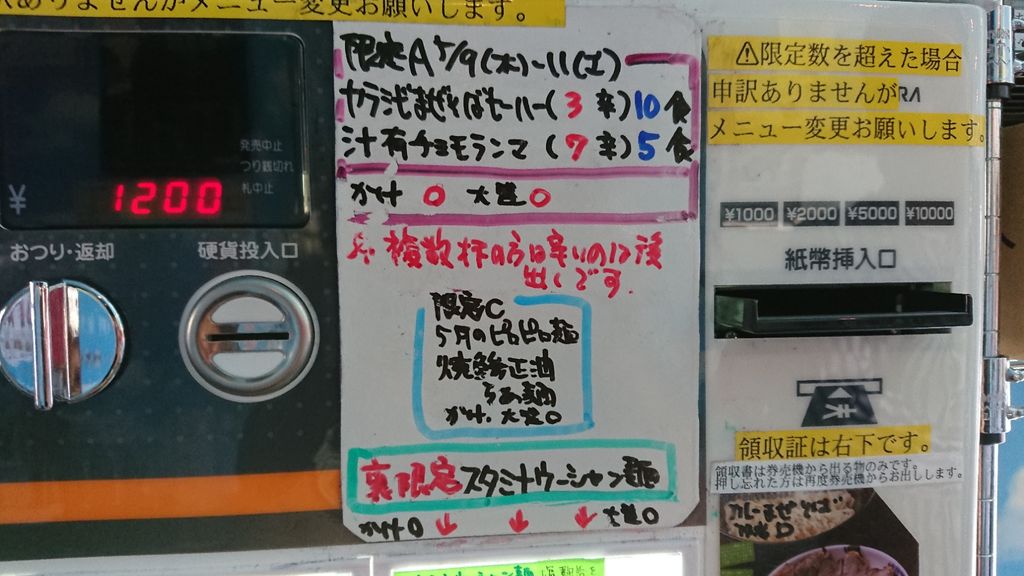 ありませんがメニュー変更お願いします。
発売中止
つり銭切れ
札中止
¥ 1200
おつり・返却
硬貨投入口
限定A 5/9(木)-11(土)
カラシビまぜそばセールー(3辛)10食
汁有チョモランマ(7辛)5食
かけ○ 大盛○
※複数杯の方は辛いのは後
出しです。
限定C
5月のピロピロ麺
焼鯵正油
らぁ麺
かけ・大盛○
裏限定スタミナウーシャン麺
かけ○ ↓ ↓ ↓ 大盛○
⚠限定数を超えた場合
申訳ありませんが
RA
メニュー変更お願いします。
¥1000 ¥2000 ¥5000 ¥10000
紙幣挿入口
領収証は右下です。
領収書は券売機から出る物のみです。
押し忘れた方は再度券売機からお出しします。
カレーまぜそば